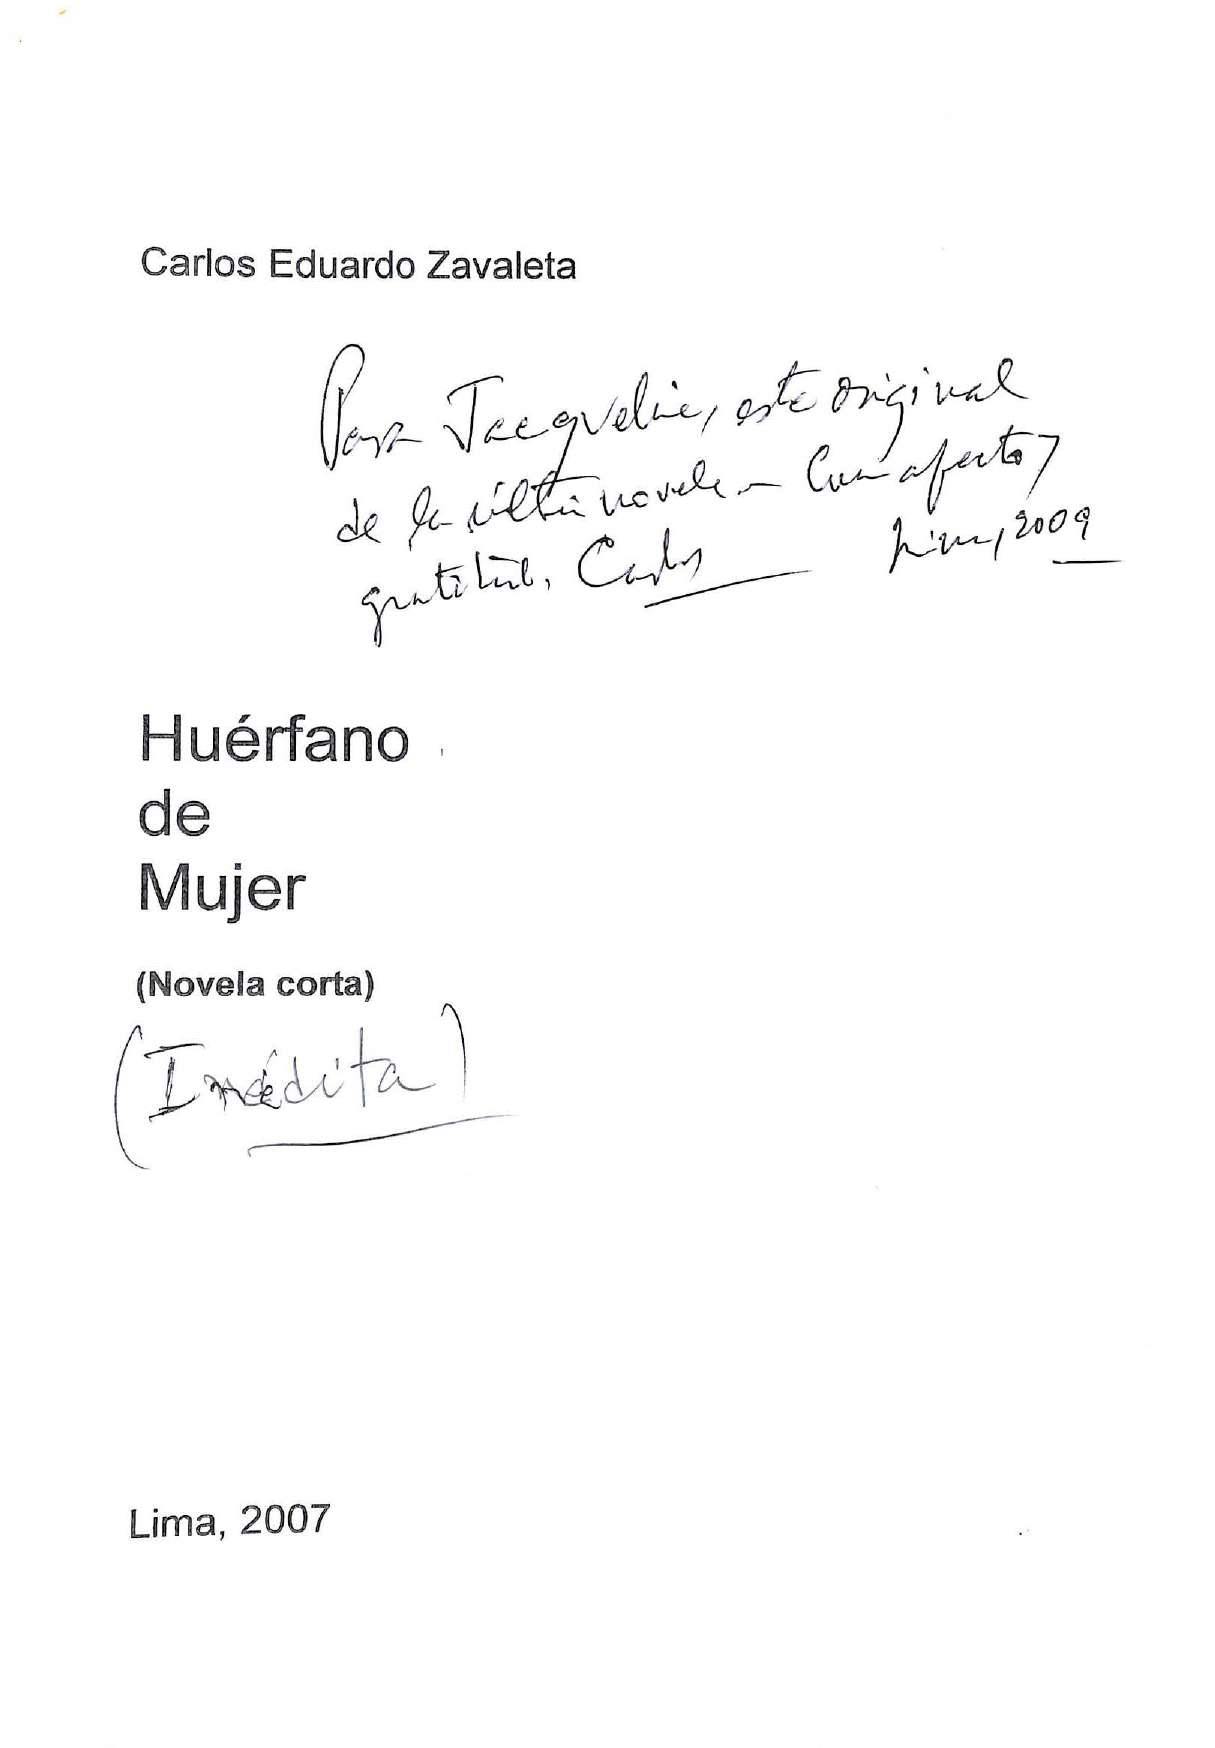 Carlos Eduardo Zavaleta
Para Jacqueline, este original
de la última novela - Con afecto y
gratitud, Carlos Lima, 2009
Huérfano
de
Mujer
(Novela corta)
(Inédita)
Lima, 2007